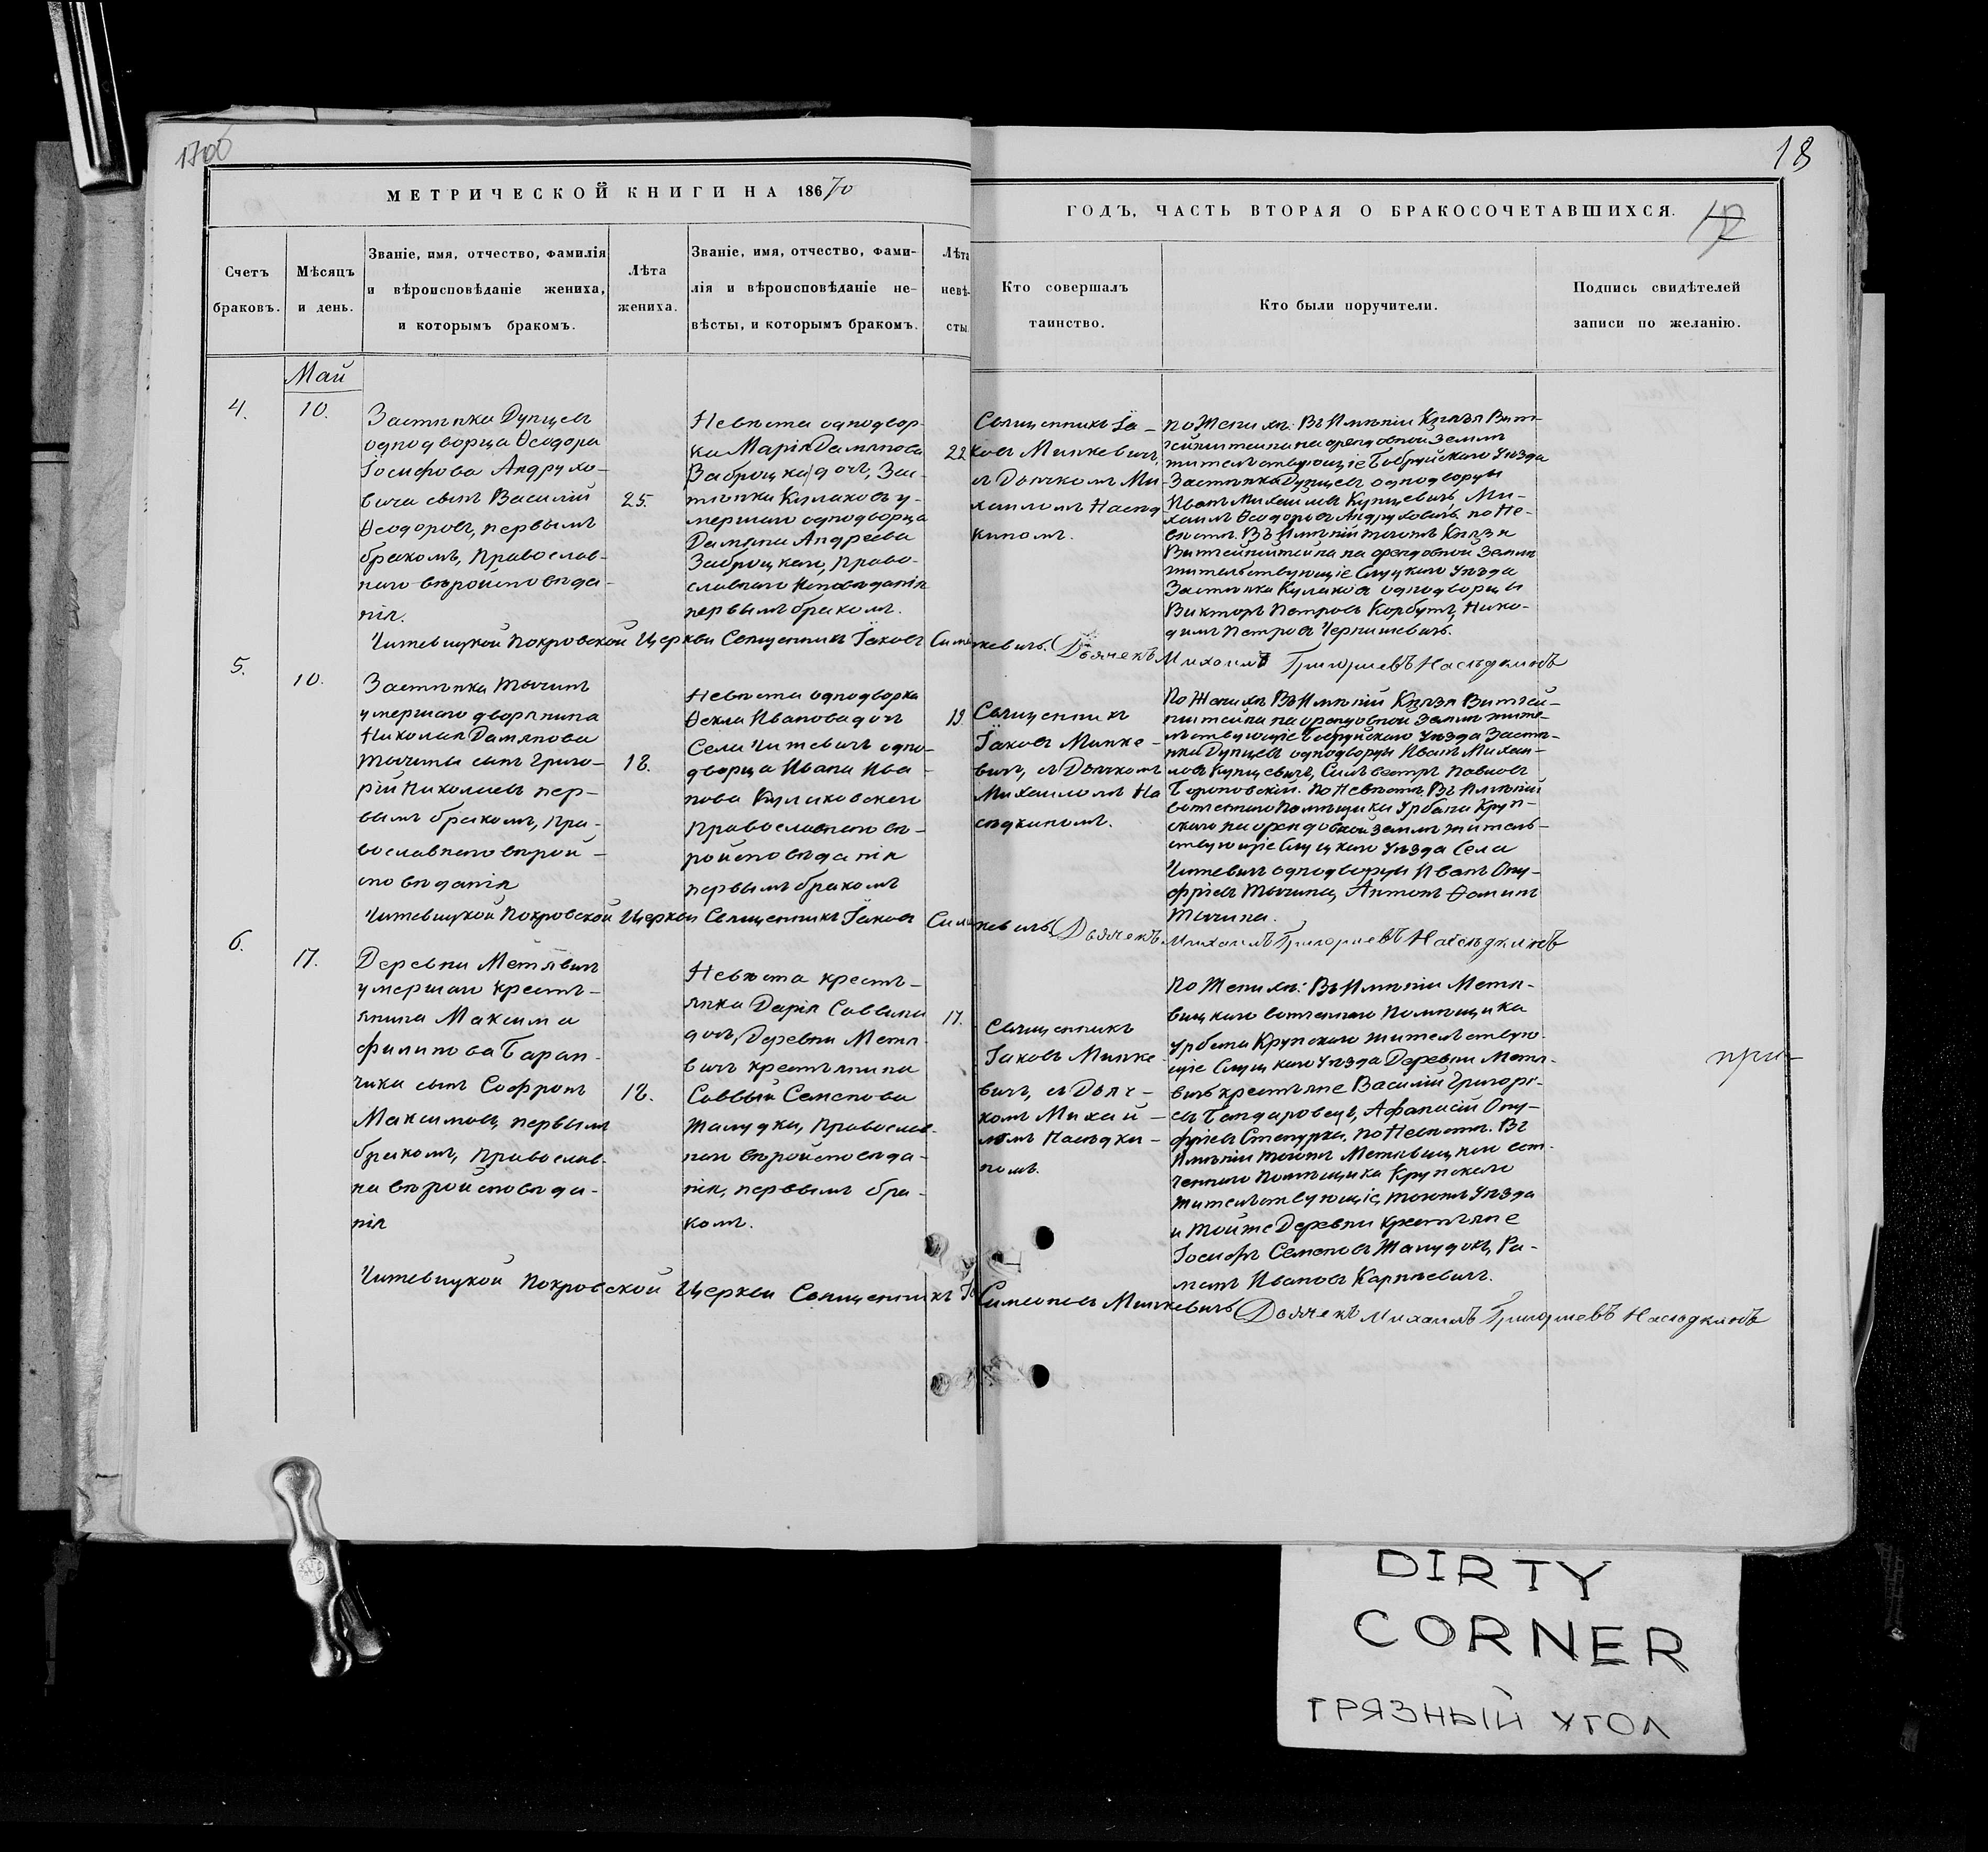 1706
18
МЕТРИЧЕСКОЙ КНИГИ НА 18670
ГОДЪ, ЧАСТЬ ВТОРАЯ О БРАКОСОЧЕТАВШИХСЯ.
17
Счетъ
браковъ.
Мѣсяцъ
и день.
Званіе, имя, отчество, фамилія
и вѣроисповѣданіе жениха,
и которымъ бракомъ.
Лѣта
жениха.
Званіе, имя, отчество, фами-
лія и вѣроисповѣданіе не-
вѣсты, и которымъ бракомъ.
Лѣта
невѣ-
сты.
Кто совершалъ
таинство.
Кто были поручители.
Подпись свидѣтелей
записи по желанію.
Май
4.
10.
Застѣнка Дупцевъ
однодворца Ѳеодора
Іосифова Андрухо-
вича сынъ Василій
Ѳеодоровъ, первымъ
бракомъ, Православ-
наго вѣроисповѣда-
нія.
25.
Невѣста однодвор-
ка Марія Дамянова
Заброцка дочь, Зас-
тѣнка Кулаковъ у-
мершаго однодворца
Дамяна Андреева
Заброцкаго, Право-
славнаго Исповѣданія
первымъ бракомъ.
22
Священникъ Іа-
ковъ Минкевичъ,
съ Дьячкомъ Ми-
хаиломъ Наслѣд
киномъ.
По Женихѣ: Въ Имѣніи Князя Вит-
генштейна на арендовной Землѣ
жительствующіе Бобруйскаго Уѣзда
Застѣнка Дупцевъ однодворцы
Иванъ Михайловъ Купцевичъ, Ми-
хаилъ Ѳеодоровъ Андруховичъ. по Не-
вѣстѣ. Въ Имѣніи тогожъ Князя
Витгейнштейна на арендовной Землѣ
жительствующіе Слуцкаго Уѣзда
Застѣнка Кулаковъ однодворцы
Викторъ Петровъ Корбутъ, Нико-
димъ Петровъ Чернишевичъ.
Читевицкой Покровской Церкви Священникъ Іаковъ Симинкевичъ. Дьячекъ Михаилъ Григориевъ Наслѣдкинъ
5.
10.
Застѣнка Тычинъ
умершаго дворянина
Николая Дамянова
Тычины сынъ Григо-
рій Николаевъ пер-
вымъ бракомъ, Пра-
вославнаго вѣрои-
сповѣданія
18.
Невѣста однодворка
Ѳекла Иванова дочь
Села Читевичъ одно-
дворца Ивана Ива-
нова Куликовскаго
Православнаго вѣ-
роисповѣданія
первымъ бракомъ
19.
Священникъ
Іаковъ Минке-
вичъ, съ Дьячкомъ
Михаиломъ На
слѣдкиномъ.
По Женихѣ Въ Имѣніи Князя Витгей-
нштейна на арендовной землѣ жите-
льствующіе Бобруйскаго Уѣзда Застѣ-
нка Дупцевъ однодворцы Иванъ Михаи-
ловъ Купцевичъ, Сильвестръ Павловъ
Бороновскій. По Невѣстѣ. Въ Имѣніи
вотченнаго Помѣщика Урбана Круп-
скаго на арендовной землѣ житель-
ствующіе Слуцкаго Уѣзда Села
Читевичъ однодворцы Иванъ Ону-
фріевъ Тычина, Антонъ Ѳоминъ
Тычина.
Читевицкой Покровской Церкви Священникъ Іаковъ Симинкевичъ Дьячекъ Михаилъ Григориевъ Наслѣдкинъ
6.
17.
Деревни Метявичъ
умершаго кресть-
янина Максима
Филипова Баран-
чика сынъ Софронъ
Максимовъ, первымъ
бракомъ, Православ-
на вѣроисповѣда-
нія
18.
Невѣста кресть-
янка Дарія Саввина
дочь, Деревни Метя-
вичъ крестьянина
Саввы Семенова
Жалудка, Православ-
наго вѣроисповѣда-
нія, первымъ бра-
комъ.
17.
Священникъ
Іаковъ Минке
вичъ, съ Дьяч-
комъ Михай-
ломъ Наслѣдки-
номъ.
По Женихѣ: Въ Имѣніи Метя-
вицкаго вотченнаго Помѣщика
Урбана Крупскаго жительствую-
щіе Слуцкаго Уѣзда Деревни Метя-
вичъ крестьяне Василій Григорі-
евъ Бандаровецъ, Афанасій Ону-
фріевъ Стенурка, по Невѣстѣ. Въ
Имѣніи тогожъ Метявицкаго вот-
ченнаго Помѣщика Крупскаго
жительствующіе, тогожъ Уѣзда
и тойже Деревни крестьяне
Іосифъ Семеновъ Жалудокъ, Ра-
манъ Ивановъ Карпѣевичъ.
при-
Читевицкой Покровской Церкви Священникъ Симеоновъ Минкевичъ Дьячекъ Михаилъ Григориевъ Наслѣдкинъ
DIRTY
CORNER
ГРЯЗНЫЙ УГОЛ